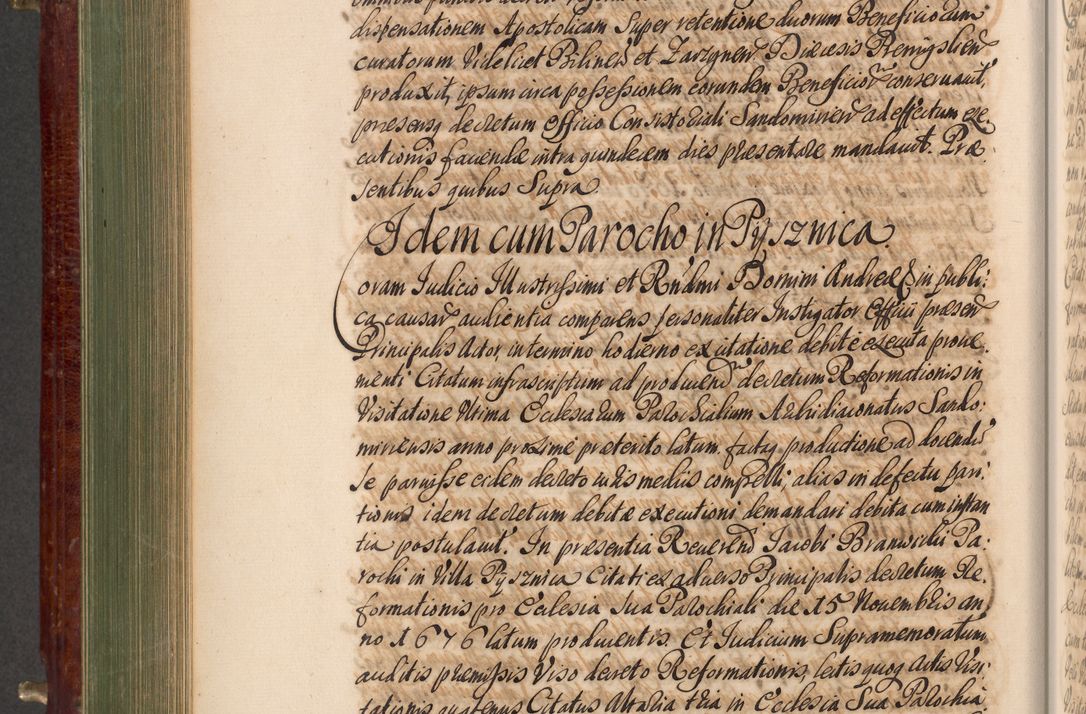 dispensationem Apostolicam Super retentione duorum Beneficiorum
curatorum Videlicet Bilinen et Zarzynen Diæcesis Premyslien
produxit, ipsum circa possessionem eorundem Beneficior conseruauit,
presensq decretum Officio Consistoriali Sandomirien ad effectum exe
cutionis faciendæ intra quindecem dies præsentare mandauit. Præ
sentibus quibus Supra
Idem cum Parocho in Pysznica.
oram Iudicio Illustrissimi et Rndmi Domini Andreæ & in publi:
ca causar audientia comparens personaliter Instigator Officii præsen
Principalis Actor, in termino hodierno ex citatione debite executa proue
nienti Citatum infrascriptum ad producend decretum Reformationis in
Visitatione Vltima Ecclesiarum Parochialium Archidiaconatus Sando:
miriensis anno proxime præterito latum, factaq productione ad docend
se paruisse eidem decreto iuris mediis compelli, alias in defectu pari
tionis idem decretum debitæ executioni demandari debita cum instan
tia postulauit. In præsentia Reuerend Iacobi Branwicki Pa:
rochi in Villa Pysznica Citati ex aduerso Principalis decretum Re
formationis pro Ecclesia Sua Parochiali die 15 Nouembris an
no 1676 latum producentis. Et Iudicium Supramemoratum
auditis præmissis Viso decreto Reformationis, lectis quoq actis Visi
tationis quatenus Citatus Altaria tria in Ecclesia Sua Parochia